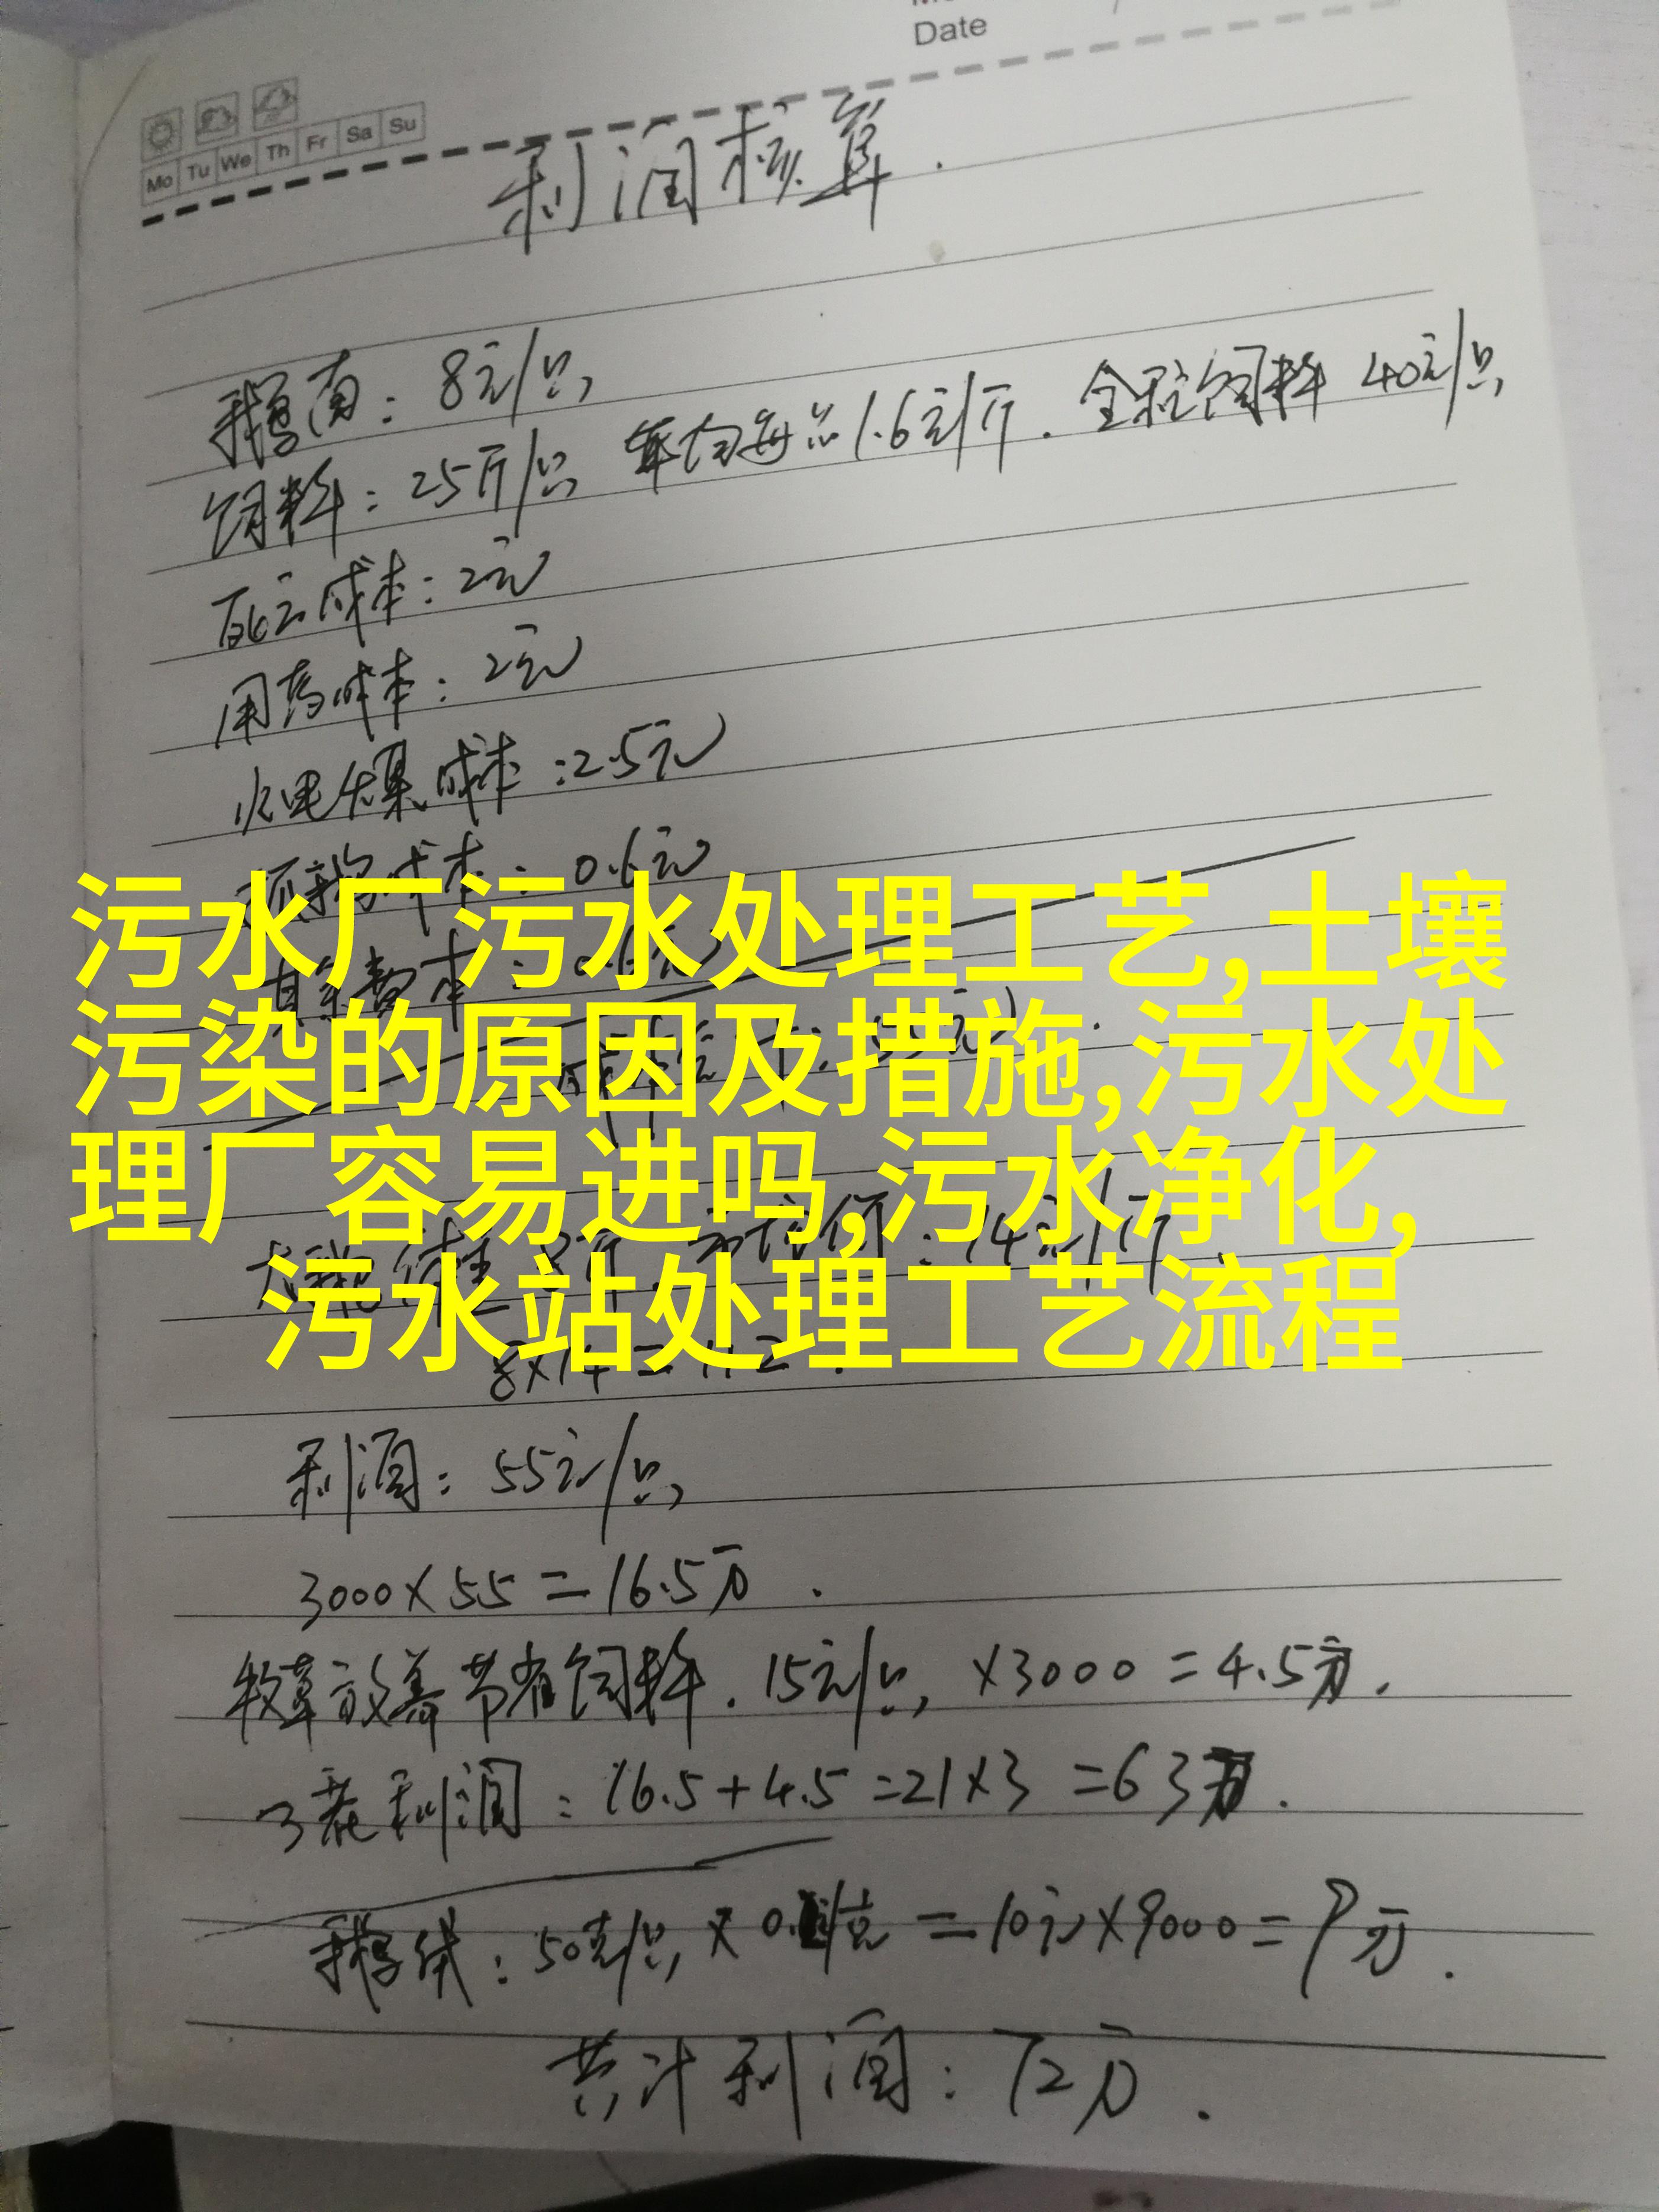 Date
Mo Tu We Th Fr Sa Su
利润核算.
鹅苗: 8元/只
饲料: 25斤/只 1.6元/斤. 全程饲料 40元/只
死亡成本: 2元
用药成本: 2元
水电煤成本: 2.5元
成本: 0.6元
污水厂污水处理工艺,土壤
污染的原因及措施,污水处
理厂容易进吗,污水净化,
污水站处理工艺流程
8×14=112.
利润: 55元/只
3000×55=16.5万.
牧草放养节省饲料. 15元/只, ×3000=4.5万.
3茬利润: 16.5+4.5=21×3=63万.
鹅绒: 50克/只 × 元/克 = 10元×9000=9万.
共计利润: 72万.